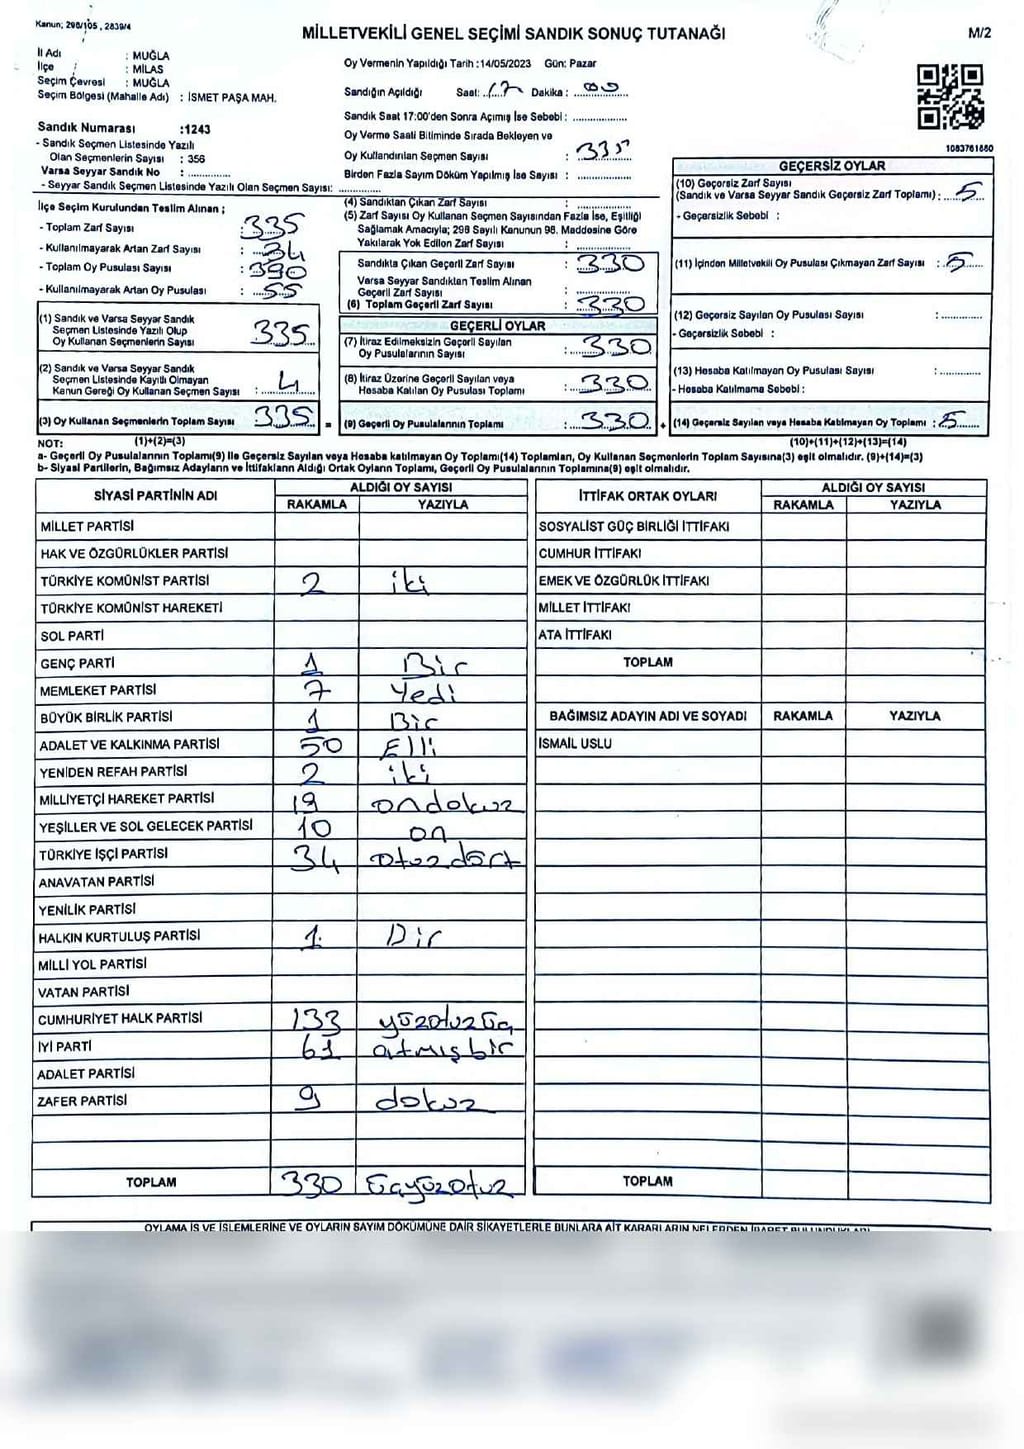 Kanun; 298/105, 2839/4
MİLLETVEKİLİ GENEL SEÇİMİ SANDIK SONUÇ TUTANAĞI
M/2
İl Adı : MUĞLA
İlçe : MİLAS
Seçim Çevresi : MUĞLA
Seçim Bölgesi (Mahalle Adı) : İSMET PAŞA MAH.
Oy Vermenin Yapıldığı Tarih :14/05/2023 Gün: Pazar
Sandığın Açıldığı Saat: 17 Dakika : 00
Sandık Saat 17:00'den Sonra Açımış İse Sebebi :
Oy Verme Saati Bitiminde Sırada Bekleyen ve
Oy Kullandırılan Seçmen Sayısı : 335
Birden Fazla Sayım Döküm Yapılmış İse Sayısı :
Sandık Numarası :1243
- Sandık Seçmen Listesinde Yazılı
Olan Seçmenlerin Sayısı : 356
Varsa Seyyar Sandık No :
- Seyyar Sandık Seçmen Listesinde Yazılı Olan Seçmen Sayısı:
1083761660
İlçe Seçim Kurulundan Teslim Alınan ;
- Toplam Zarf Sayısı : 335
- Kullanılmayarak Artan Zarf Sayısı : 34
- Toplam Oy Pusulası Sayısı : 390
- Kullanılmayarak Artan Oy Pusulası : 55
(1) Sandık ve Varsa Seyyar Sandık
Seçmen Listesinde Yazılı Olup
Oy Kullanan Seçmenlerin Sayısı 335
(2) Sandık ve Varsa Seyyar Sandık
Seçmen Listesinde Kayıtlı Olmayan
Kanun Gereği Oy Kullanan Seçmen Sayısı : 4
(3) Oy Kullanan Seçmenlerin Toplam Sayısı 335 =
(4) Sandıktan Çıkan Zarf Sayısı :
(5) Zarf Sayısı Oy Kullanan Seçmen Sayısından Fazla İse, Eşitliği
Sağlamak Amacıyla; 298 Sayılı Kanunun 98. Maddesine Göre
Yakılarak Yok Edilen Zarf Sayısı :
Sandıkta Çıkan Geçerli Zarf Sayısı : 330
Varsa Seyyar Sandıktan Teslim Alınan
Geçerli Zarf Sayısı :
(6) Toplam Geçerli Zarf Sayısı : 330
GEÇERLİ OYLAR
(7) İtiraz Edilmeksizin Geçerli Sayılan
Oy Pusulalarının Sayısı : 330
(8) İtiraz Üzerine Geçerli Sayılan veya
Hesaba Katılan Oy Pusulası Toplamı : 330
(9) Geçerli Oy Pusulalarının Toplamı : 330 +
GEÇERSİZ OYLAR
(10) Geçersiz Zarf Sayısı
(Sandık ve Varsa Seyyar Sandık Geçersiz Zarf Toplamı) : 5
- Geçersizlik Sebebi :
(11) İçinden Milletvekili Oy Pusulası Çıkmayan Zarf Sayısı : 5
(12) Geçersiz Sayılan Oy Pusulası Sayısı :
- Geçersizlik Sebebi :
(13) Hesaba Katılmayan Oy Pusulası Sayısı :
- Hesaba Katılmama Sebebi :
(14) Geçersiz Sayılan veya Hesaba Katılmayan Oy Toplamı : 5
NOT: (1)+(2)=(3) (10)+(11)+(12)+(13)=(14)
a- Geçerli Oy Pusulalarının Toplamı(9) ile Geçersiz Sayılan veya Hesaba katılmayan Oy Toplamı(14) Toplamları, Oy Kullanan Seçmenlerin Toplam Sayısına(3) eşit olmalıdır. (9)+(14)=(3)
b- Siyasi Partilerin, Bağımsız Adayların ve İttifakların Aldığı Ortak Oyların Toplamı, Geçerli Oy Pusulalarının Toplamına(9) eşit olmalıdır.
SİYASİ PARTİNİN ADI ALDIĞI OY SAYISI
RAKAMLA YAZIYLA
MİLLET PARTİSİ
HAK VE ÖZGÜRLÜKLER PARTİSİ
TÜRKİYE KOMÜNİST PARTİSİ 2 iki
TÜRKİYE KOMÜNİST HAREKETİ
SOL PARTİ
GENÇ PARTİ 1 Bir
MEMLEKET PARTİSİ 7 Yedi
BÜYÜK BİRLİK PARTİSİ 1 Bir
ADALET VE KALKINMA PARTİSİ 50 Elli
YENİDEN REFAH PARTİSİ 2 iki
MİLLİYETÇİ HAREKET PARTİSİ 19 ondokuz
YEŞİLLER VE SOL GELECEK PARTİSİ 10 on
TÜRKİYE İŞÇİ PARTİSİ 34 otuzdört
ANAVATAN PARTİSİ
YENİLİK PARTİSİ
HALKIN KURTULUŞ PARTİSİ 1 Bir
MİLLİ YOL PARTİSİ
VATAN PARTİSİ
CUMHURİYET HALK PARTİSİ 133 yüzotuzüç
İYİ PARTİ 61 atmışbir
ADALET PARTİSİ
ZAFER PARTİSİ 9 dokuz
TOPLAM 330 üçyüzotuz
İTTİFAK ORTAK OYLARI ALDIĞI OY SAYISI
RAKAMLA YAZIYLA
SOSYALİST GÜÇ BİRLİĞİ İTTİFAKI
CUMHUR İTTİFAKI
EMEK VE ÖZGÜRLÜK İTTİFAKI
MİLLET İTTİFAKI
ATA İTTİFAKI
TOPLAM
BAĞIMSIZ ADAYIN ADI VE SOYADI RAKAMLA YAZIYLA
İSMAİL USLU
TOPLAM
OYLAMA İŞ VE İŞLEMLERİNE VE OYLARIN SAYIM DÖKÜMÜNE DAİR ŞİKAYETLERLE BUNLARA AİT KARARLARIN NELERDEN İBARET BULUNDUKLARI